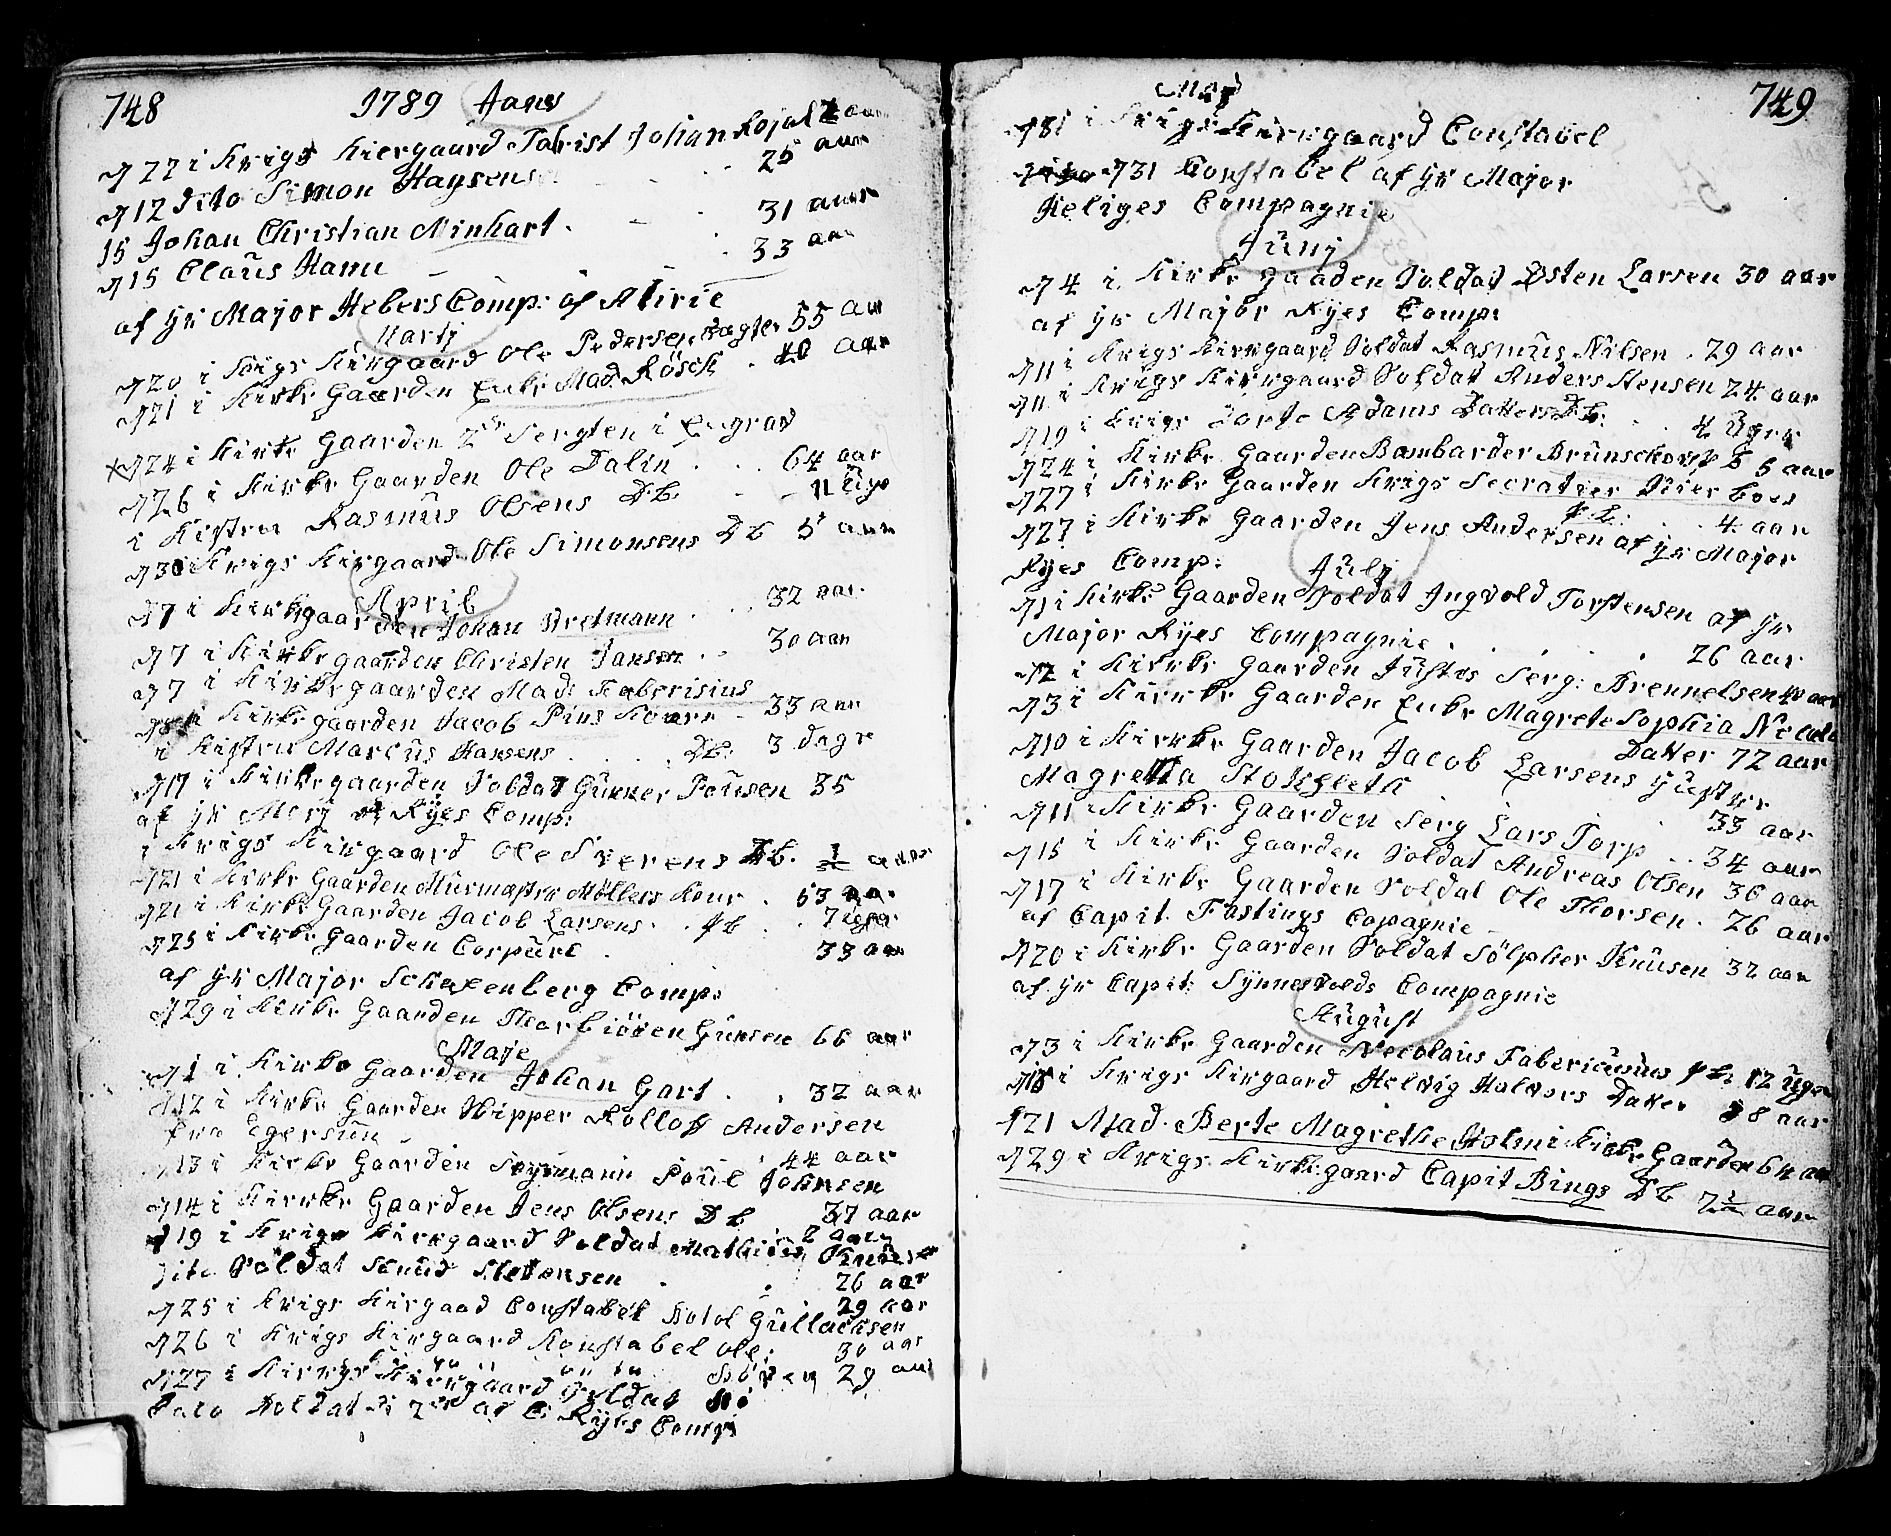 748
1789 Janv
d 22 i Krigs Kiergaard Johan
25 aar
d 12 Dito Simon Haysens
15 Johan Christian Minhart . 31 aar
d 15 Claus Hanu 33 aar
af Hr Major Hebers Comp: of
Martj
d 20 i Krigs Kirgaard Ole Pedersen 55 aar
d 21 i Kirke Gaarden Enke Mad: Rösch . 40 aar
d 24 i Kirke Gaarden Sergten i
d 26 i Kirke Gaarden Ole Dalin . . . 64 aar
i Kistru Rasmus Olsens Db. 11 Uge
d 30 i Krigs Kirgaard Ole Simonsens Db 5 aar
April
d 7 i Kirkegaarden Johan . . 32 aar
d 7 i Kirkegaarden Christen Jansen . . 30 aar
d 7 i Kirkegaarden Mad: Faberisius
i Kirkegaarden Jacob Pins Konen - 33 aar
i Kistru Marcus Hansens . . . . Db: 3 dage
d 17 i Kirkegaarden Soldat Gunner Pousen 35
af Hr Maj Ryes Comp:
i Krigs Kirgaard Ole Db. aar
d 21 i Kirke Gaarden Murmaster Möllers Konr . 63 aar
d 21 i Kirke Gaarden Jacob Larsens . . Pb . . 7 uger
d 25 i Kirke Gaarden Corpural . 33 aar
af Hr Major Schaxenberg Comp:
d 29 i Kirke Gaarden Thorbiören Gunsen 66 aar
Maje
d 1 i Kirke Gaarden Johan Gart . . 32 aar
i Kirke Gaarden Skipper Rollof Andersen
fra Egersun 44 aar
d 13 i Kirke Gaarden Poul Johnsen
37 aar
d 14 i Kirke Gaarden Jens Olsens Db 2 aar
d 19 i Krigs Kirkgaard Soldat Mathias Knudsen
dito Soldat Knud 26 aar
29 aar
d 25 i Krigs Kirgaad Constabel Gullachsen
d 26 i Krigs Kirgaard Konstabel Ole: 30 aar
d 27 i Krigs Kirkgaard Soldat 29 aar
Soldat af Ryes Comp:
749
Maj
d 31 i Krigs Kirkgaard Constabel
d 31 Constabel af Hr Major
Heliges Compagnie
Junj
d 4 i Kirke Gaaden Soldat Østen Larsen 30 aar
af Hr Major Ryes Comp:
d 11 i Krigs Kirkgaard Soldat Rasmus Nilsen . 29 aar
d 11 i Krigs Kirkgaard Soldat Anders Stensen 24 aar
d 19 i Krigs Dorte Adams Datters Db: . . 4 Uger
d 24 i Kirke Gaarden Bombarder Brunschorst 55 aar
d 27 i Kirke Gaarden Krigs Secratrer
Pb: . . 4 aar
d 27 i Kirke Gaarden Jens Andersen af Hr Major
Ryes Comp:
July
d 1 i Kirke Gaarden Soldat Ingvold Torstensen af Hr
Major Ryes Compagnie . . . . 26 aar
d 2 i Kirke Gaarden Justes Serg: Brennelsen 40 aar
d 3 i Kirke Gaarden Enke Magrete Sophia
Datter 72 aar
d 10 i Kirke Gaarden Jacob Larsens Hustru
Magretta Stokfleth . 33 aar
d 11 i Kirke Gaarden Serg Lars Torp . . 34 aar
d 15 i Kirke Gaarden Soldat Andreas Olsen 36 aar
d 17 i Kirke Gaarden Soldat Ole Thorsen . 26 aar
af Capit. Fastings Copagnie
d 20 i Kirke Gaarden Soldat Sölpher Knusen 32 aar
af Hr Capit: Synnesvolds Compagnie
August
d 3 i Kirke Gaarden Necolaus Fabericusus Pb: 12 Uger
i Krigs Kirgaard Helvig Halvors Datter 38 aar
d 21 Mad. Berte Magrethe Holm i Kirke Gaarden 64 aar
d 29 i Krigs Kirkegaard Capit Bings Db 2½ aar